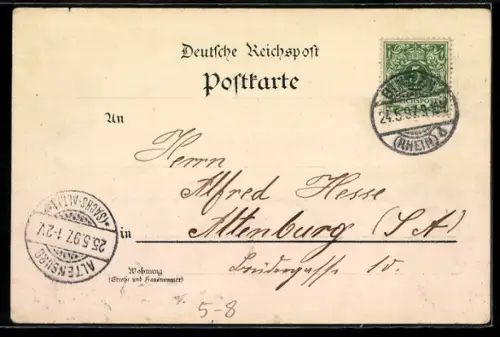 Deutsche Reichspost
Postkarte
5
REICHSPOST
24.5.97.9
(RHEIN)
An
Herrn
Alfred Hesse
in Altenburg (S A)
Brüdergasse 10.
Wohnung
(Straße und Hausnummer)
ALTENBURG
25.5.97. 1-2V.
*(SACHS.-ALT.)
5-8